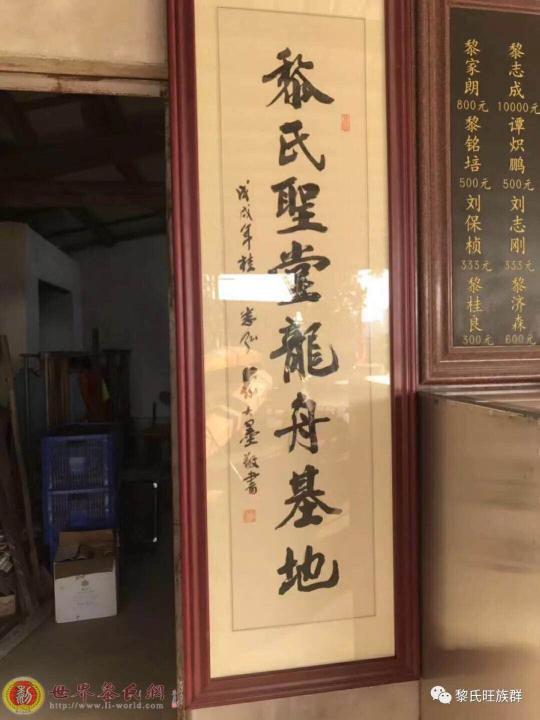 黎氏聖堂龍舟基地
戊戌年桂
敬書
黎志成
10000元
谭炽鹏
500元
刘志刚
333元
黎济森
600元
黎家朗
800元
黎铭培
500元
刘保桢
333元
黎桂良
300元
世界黎氏網
http://www.li-world.com
黎氏旺族群